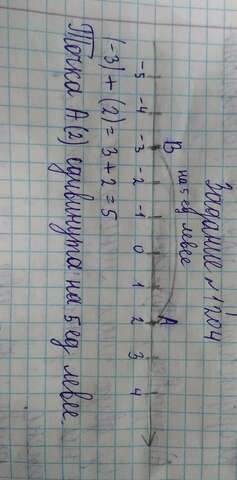 Задание №1204
на 5 ед левее
B A
-5 -4 -3 -2 -1 0 1 2 3 4
(-3) + (2) = 3 + 2 = 5
Точка A (2) сдвинута на 5 ед левее.